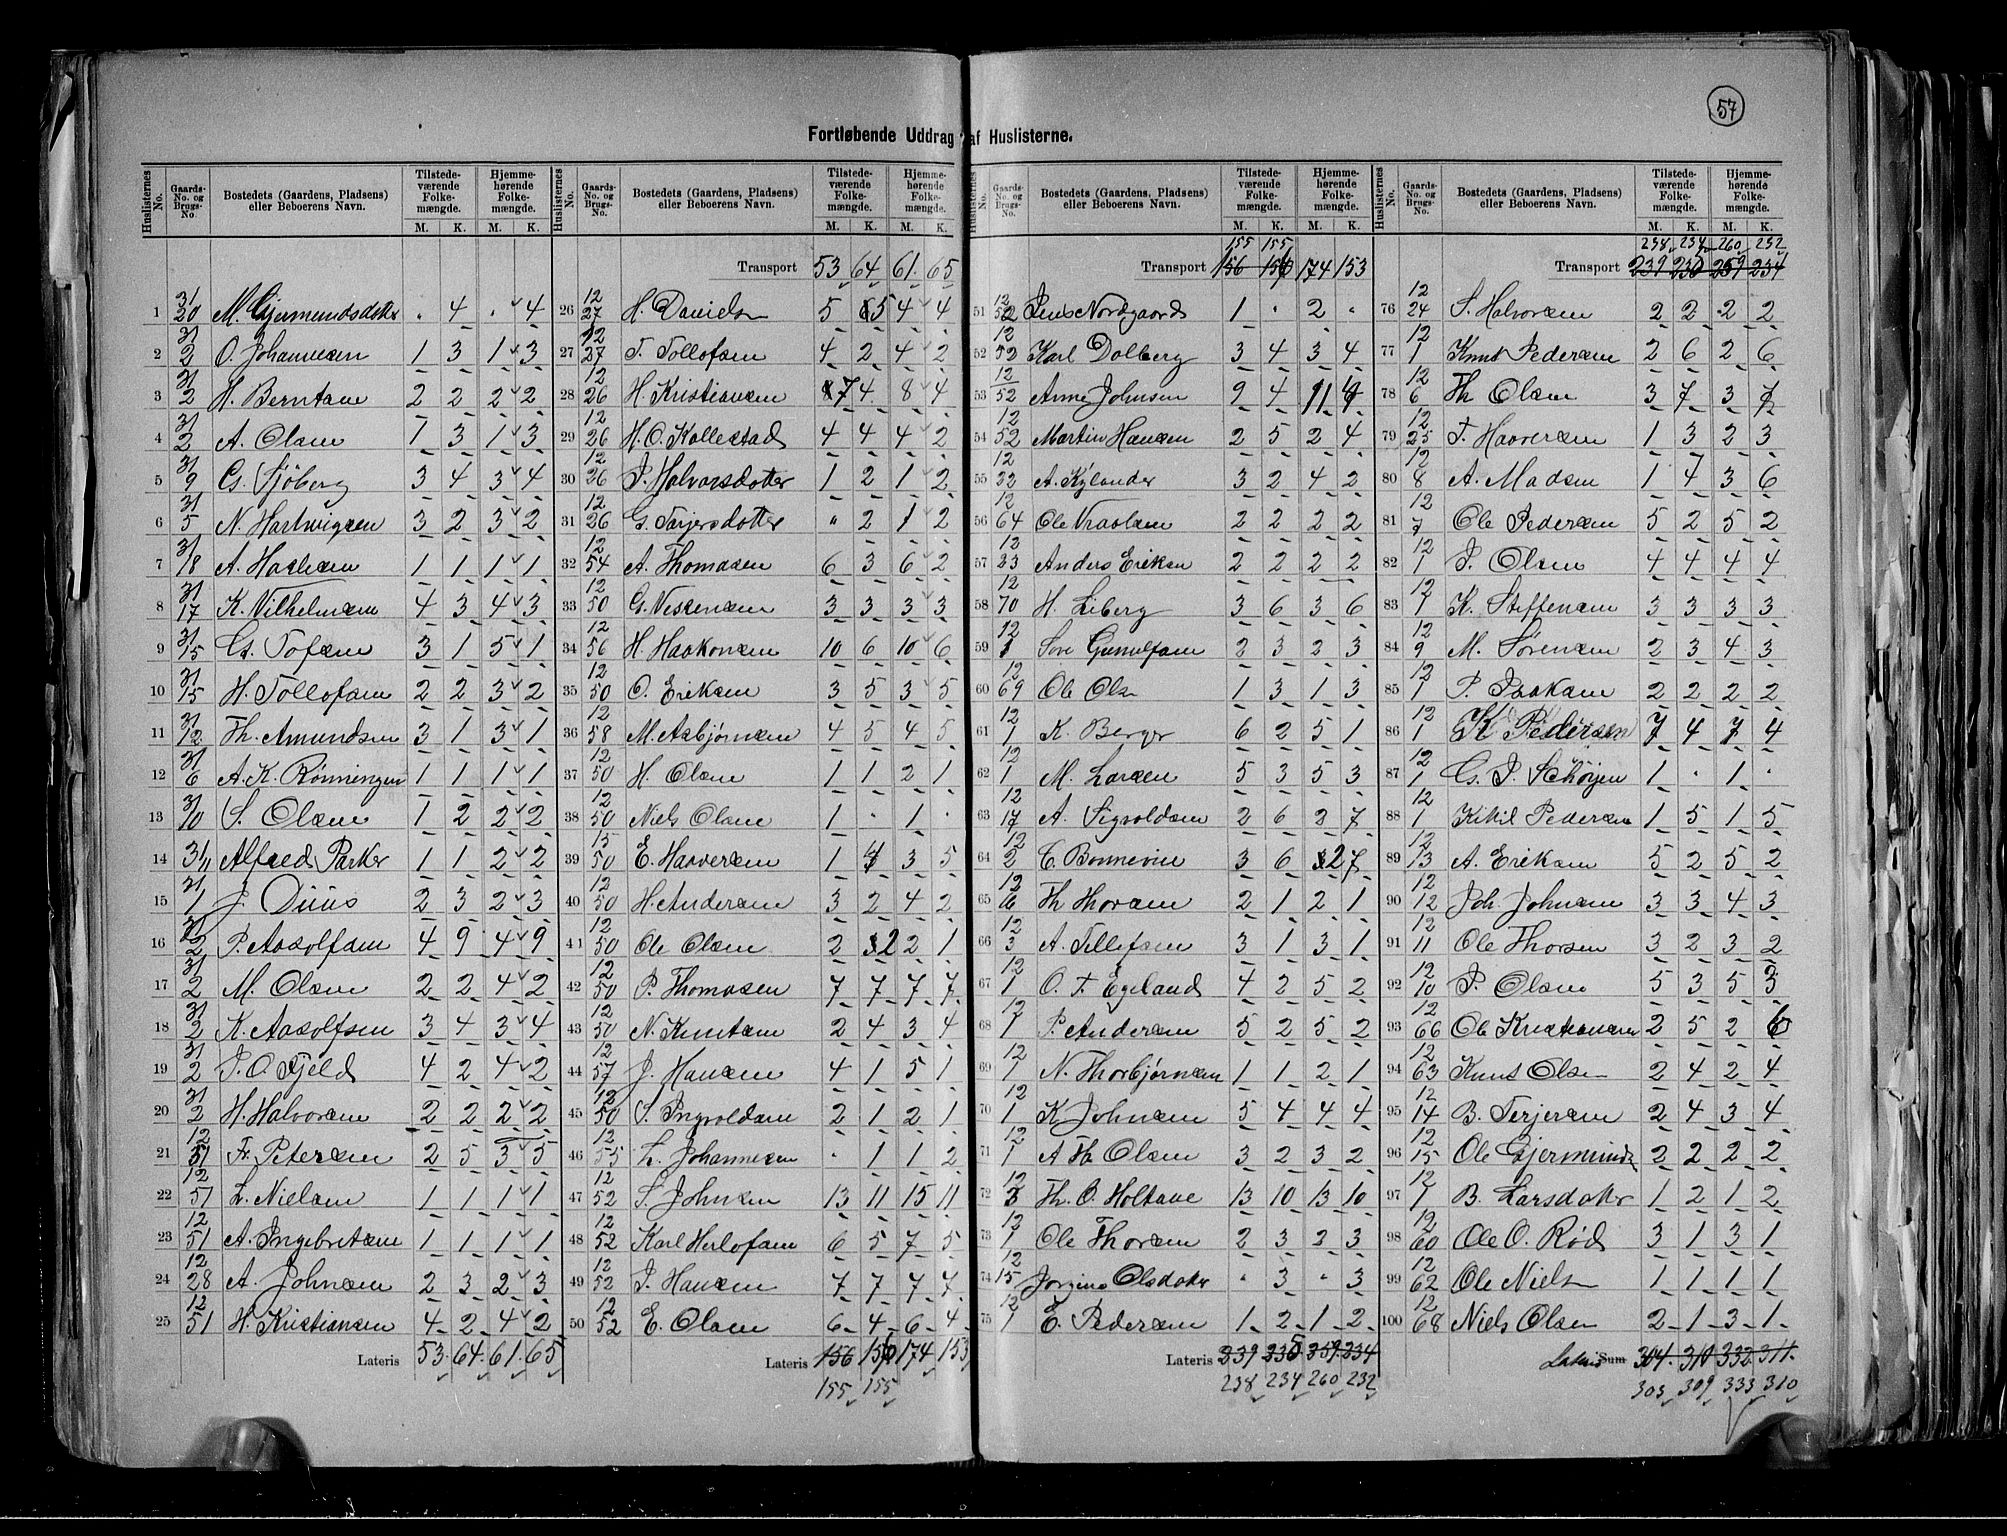 57
Fortløbende Uddrag af Huslisterne.
Huslisternes No. Gaards-No. og Brugs-No. Bostedets (Gaardens, Pladsens) eller Beboerens Navn. Tilstedeværende Folkemængde. M. K. Hjemmehørende Folkemængde. M. K.
1 31/20 M. Gjermundsdatter . 4 . 4
2 31/2 O. Johannesen 1 3 1 3
3 31/2 H. Berntsen 2 2 2 2
4 31/2 A. Olsen 1 3 1 3
5 31/9 G. Sjöberg 3 4 3 4
6 31/5 N. Hartvigsen 3 2 3 2
7 31/18 A. 1 1 1 1
8 31/17 K. Vilhelmsen 4 3 4 3
9 31/15 G. Tofsen 3 1 5 1
10 31/15 H. Tollofsen 2 2 3 2
11 31/12 Th. Amundsen 3 1 3 1
12 31/6 A. K. Rönningen 1 1 1 1
13 31/10 S. Olsen 1 2 2 2
14 31/11 Alfred Parker 1 1 2 2
15 31/1 J. Duus 2 3 2 3
16 31/2 P. Aasolfsen 4 9 4 9
17 31/2 M. Olsen 2 2 4 2
18 31/2 K. Aasolfsen 3 4 3 4
19 31/2 J. O. Fjeld 4 2 4 2
20 31/2 H. Halvorsen 2 2 2 2
21 12/51 Fr. Petersen 2 5 3 5
22 12/51 L. Nielsen 1 1 1 1
23 12/51 A. Ingebretsen 1 1 1 1
24 12/28 A. Johnsen 2 3 2 3
25 12/51 H. Kristiansen 4 2 4 2
Lateris 53 64 61 65
Huslisternes No. Gaards-No. og Brugs-No. Bostedets (Gaardens, Pladsens) eller Beboerens Navn. Tilstedeværende Folkemængde. M. K. Hjemmehørende Folkemængde. M. K.
Transport 53 64 61 65
26 12/27 H. Davidsen 5 5 4 4
27 12/27 T. Tollofsen 4 2 4 2
28 12/26 H. Kristiansen 7 4 8 4
29 12/26 H. O. Kollestad 4 4 4 2
30 12/26 J. Halvorsdotter 1 2 1 2
31 12/26 G. Tarjersdotter " 2 1 2
32 12/54 A. Thomasen 6 3 6 2
33 12/50 G. Nessensen 3 3 3 3
34 12/56 H. Haakonsen 10 6 10 6
35 12/50 O. Eriksen 3 5 3 5
36 12/58 M. Asbjørnsen 4 5 4 5
37 12/50 H. Olsen 1 1 2 1
38 12/50 Niels Olsen 1 . 1 .
39 15/50 E. Haaversen 1 4 3 5
40 12/50 H. Andersen 3 2 4 2
41 12/50 Ole Olsen 2 2 2 1
42 12/50 P. Thomasen 7 7 7 7
43 12/50 N. Knutsen 2 4 3 4
44 12/57 J. Hansen 4 1 5 1
45 12/50 S. Ingvoldsen 2 1 2 1
46 12/55 L. Johannesen . 1 1 2
47 12/52 S. Johnsen 13 11 15 11
48 12/52 Karl Herlofsen 6 5 7 5
49 12/52 J. Hansen 7 7 7 7
50 12/52 E. Olsen 6 4 6 4
Lateris 156 156 174 153
155 155
Huslisternes No. Gaards-No. og Brugs-No. Bostedets (Gaardens, Pladsens) eller Beboerens Navn. Tilstedeværende Folkemængde. M. K. Hjemmehørende Folkemængde. M. K.
155 155
Transport 156 156 174 153
51 12/52 Jens Nordgaard 1 . 2 .
52 12/52 Karl Dolberg 3 4 3 4
53 12/52 Anne Johnsen 9 4 11 4
54 12/52 Martin Hansen 2 5 2 4
55 12/22 A. Kylander 3 2 4 2
56 12/64 Ole Vraalsen 2 2 2 2
57 12/23 Anders Eriksen 2 2 2 2
58 12/70 H. Liberg 3 6 3 6
59 12/1 Gunulfsen 2 3 2 3
60 12/69 Ole Olsn 1 3 1 3
61 12/1 K. Berger 6 2 5 1
62 12/1 M. Larsen 5 3 5 3
63 12/17 A. Sigvoldsen 2 6 2 7
64 12/2 C. Bonnevie 3 6 2 7
65 12/6 Th Thorsen 2 1 2 1
66 12/3 A. Tellefsen 3 1 3 1
67 12/1 O. T. Egeland 4 2 5 2
68 12/1 P. Andersen 5 2 5 2
69 12/1 N. Thorbjørnsen 1 1 2 1
70 12/1 K. Johnsen 5 4 4 4
71 12/1 A Th. Olsen 3 2 3 2
72 12/3 Th. O. Holtane 13 10 13 10
73 12/1 Ole Thorsen 2 3 2 3
74 12/15 Jorgine Olsdatter " 3 " 3
75 12/1 E. Pedersen 1 2 1 2
Lateris 239 235 259 234
238 234 260 232
Huslisternes No. Gaards-No. og Brugs-No. Bostedets (Gaardens, Pladsens) eller Beboerens Navn. Tilstedeværende Folkemængde. M. K. Hjemmehørende Folkemængde. M. K.
238 234 260 232
Transport 239 235 259 234
76 12/24 S. Halvorsen 2 2 2 2
77 12/1 Knut Pedersen 2 6 2 6
78 12/6 Th Olsen 3 7 3 7
79 12/25 T. Haaversen 1 3 2 3
80 12/8 A. Madsen 1 4 3 6
81 12/7 Ole Pedersen 5 2 5 2
82 12/1 J. Olsen 4 4 4 4
83 12/1 K. Steffensen 3 3 3 3
84 12/9 M. Sørensen 2 3 4 3
85 12/1 P. Isaksen 2 2 2 2
86 12/1 K. Pedersen 7 4 7 4
87 12/1 G. J. Schøyen 1 . 1 .
88 12/1 Kitil Pedersen 1 5 1 5
89 12/13 A. Eriksen 5 2 5 2
90 12/12 Joh. Johnsen 3 3 4 3
91 12/11 Ole Thorsen 3 2 3 2
92 12/10 J. Olsen 5 3 5 3
93 12/66 Ole Kristiansen 2 5 2 6
94 12/63 Knut Olsen 2 4 2 4
95 12/14 B. Terjersen 2 4 3 4
96 12/15 Ole Gjermunds 2 2 2 2
97 12/1 B. Larsdoter 1 2 1 2
98 12/60 Ole O. Rød 3 1 3 1
99 12/62 Ole Nielsn 1 1 1 1
100 12/68 Niels Olsen 2 1 3 1
Lateris Sum 304 310 332 311
303 309 333 310